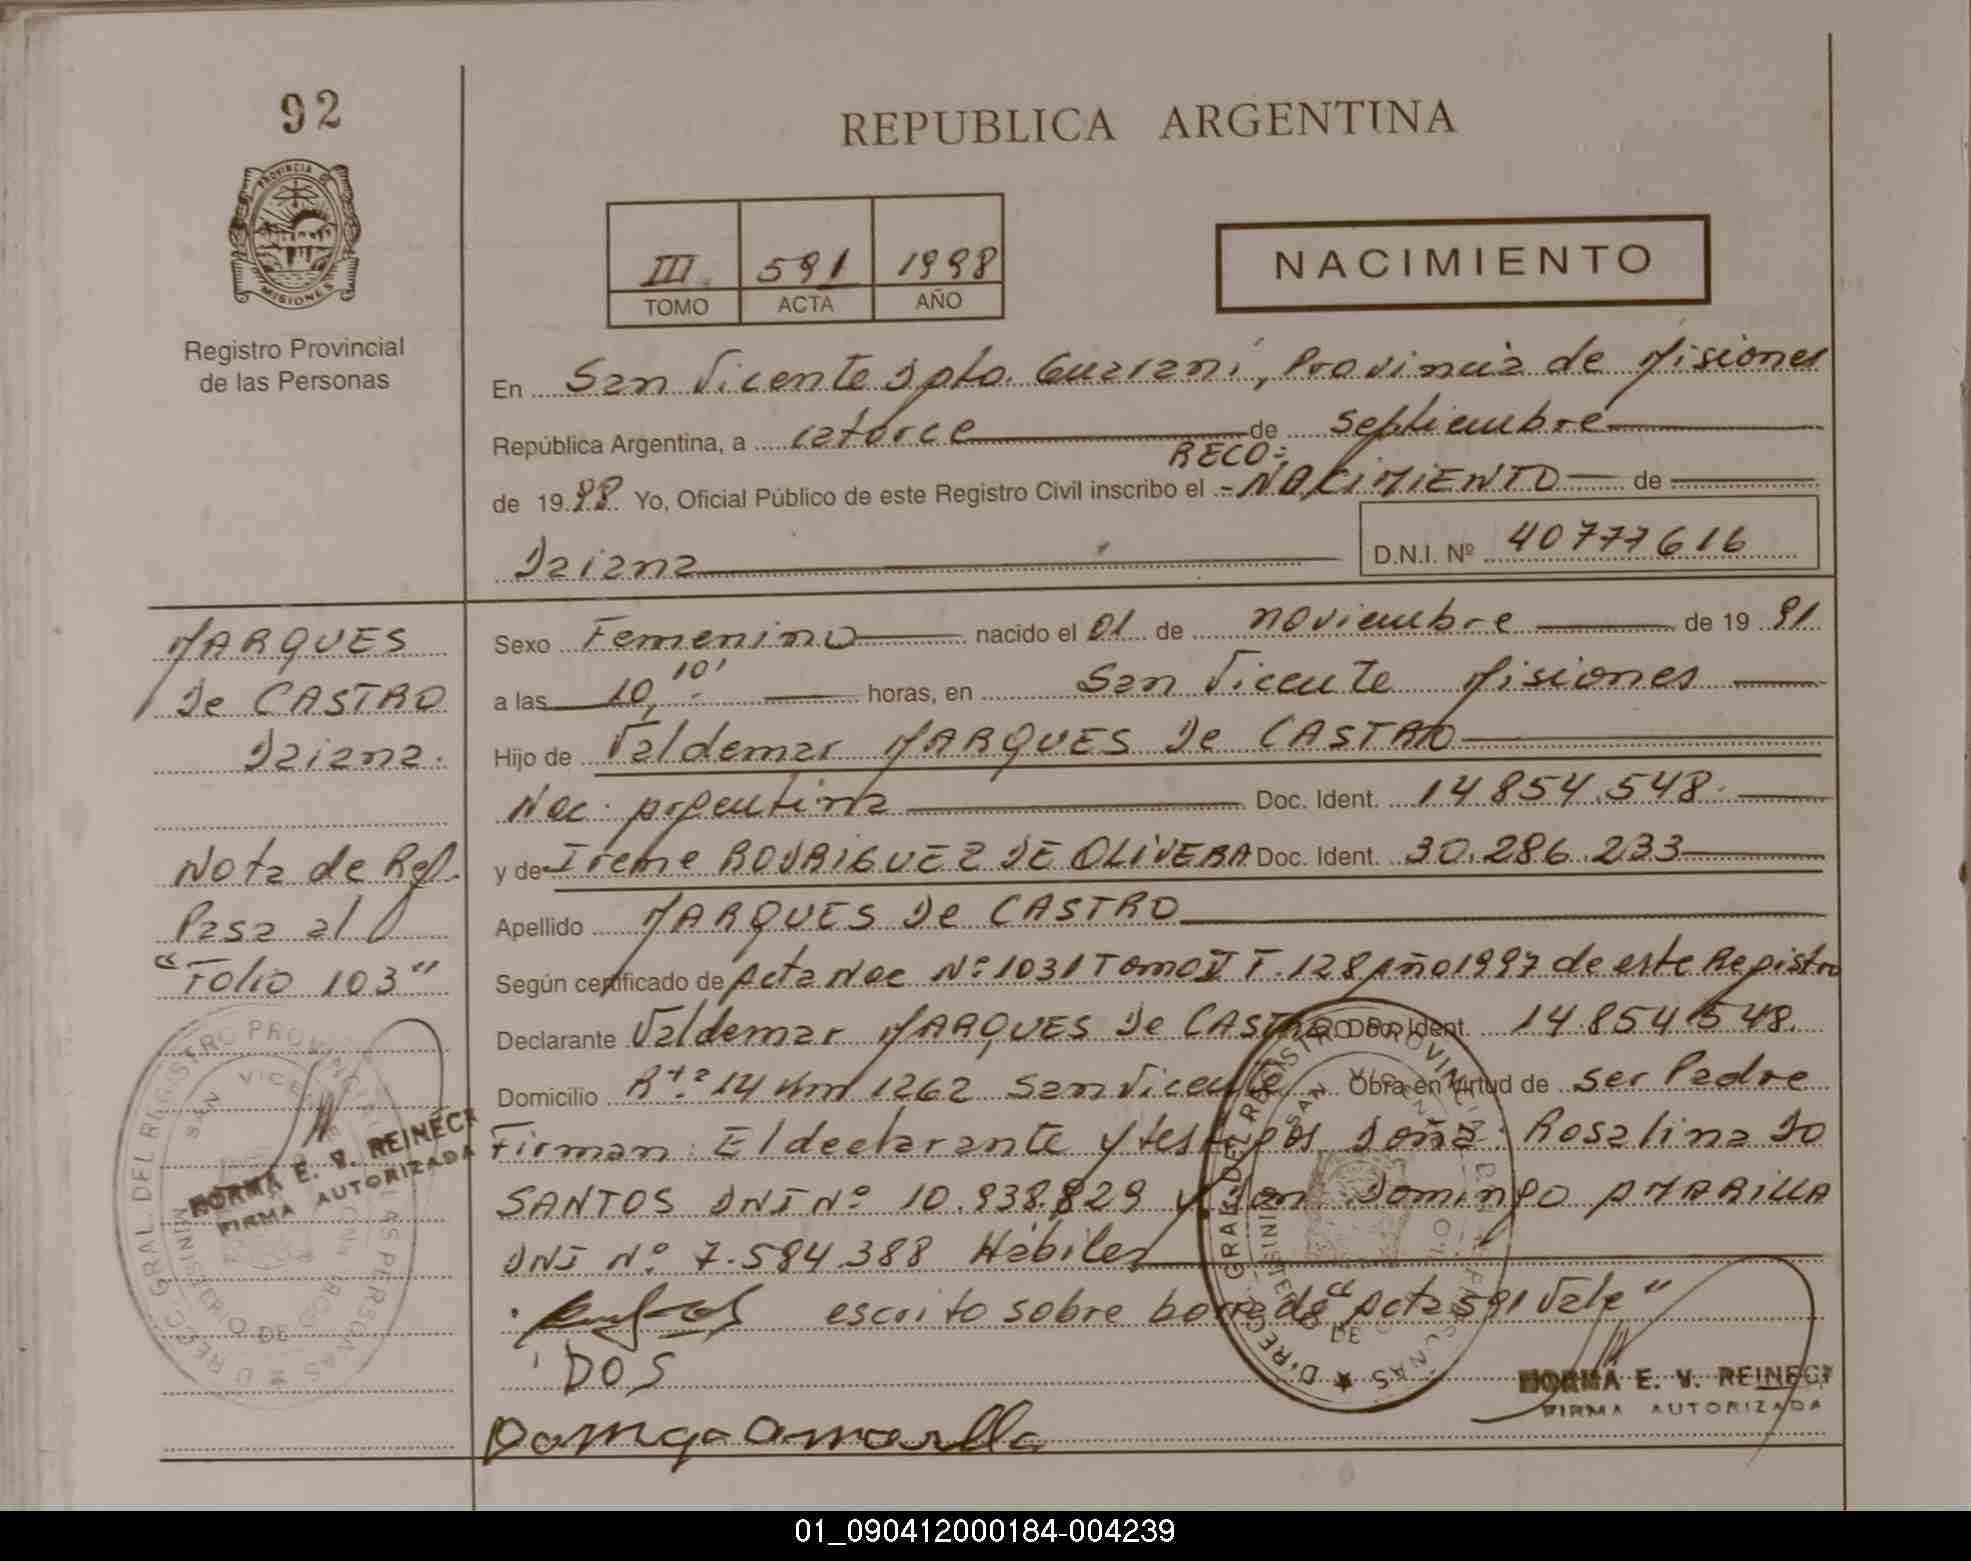 92
REPUBLICA ARGENTINA
PROVINCIA
MISIONES
Registro Provincial
de las Personas
III 591 1998
TOMO ACTA AÑO
NACIMIENTO
En San Vicente Dpto. Guaraní, Provincia de Misiones
República Argentina, a catorce de septiembre
RECO=
de 1998 Yo, Oficial Público de este Registro Civil inscribo el -NACIMIENTO de
Daiana D.N.I. Nº 40777616
MARQUES
De CASTRO
Daiana.
Nota de Ref.
Pasa al
"Folio 103"
Sexo Femenino nacido el 01 de noviembre de 19 91
a las 10,10' horas, en San Vicente Misiones
Hijo de Valdemar MARQUES De CASTRO
Nac. Argentina Doc. Ident. 14854.548.
y de Irene RODRIGUEZ DE OLIVERA Doc. Ident. 30.286.233
Apellido MARQUES De CASTRO
Según certificado de Acta Nac Nº 1031 Tomo F. 128 Año 1997 de este Registro
Declarante Valdemar MARQUES De CASTRO Doc. Ident. 14.854.548.
Domicilio Rta. 14 Km 1262 San Vicente Obra en virtud de ser Padre
Firman: El declarante y testigos Doña: Rosalina DO
SANTOS DNI Nº 10.938.829 y Don Domingo AMARILLA
DNI Nº 7.584.388 Hábiles
escrito sobre borrado "Acta 591 Vale"
DOS
NORMA E. V. REINECK
FIRMA AUTORIZADA
NORMA E. V. REINECK
FIRMA AUTORIZADA
01_090412000184-004239